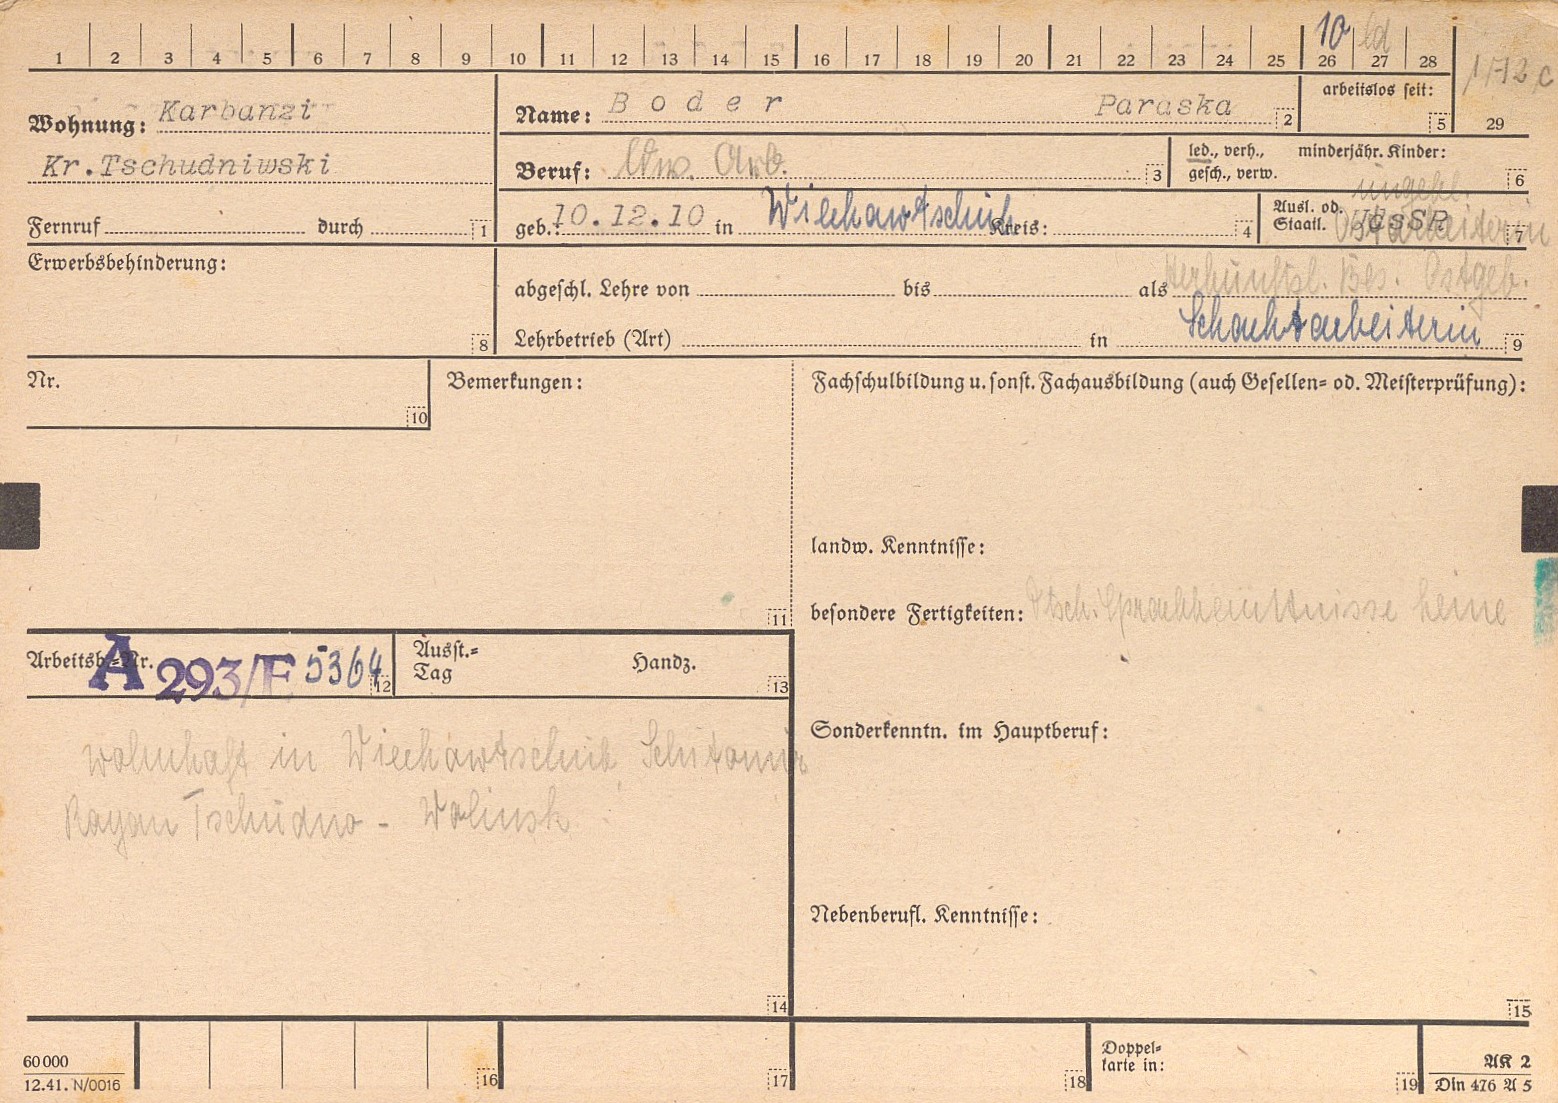 1 2 3 4 5 6 7 8 9 10 11 12 13 14 15 16 17 18 19 20 21 22 23 24 25 26 27 28
10 ld
172 c
29
Wohnung: Karbanzi
Kr.Tschudniwski
Name: Boder Paraska 2
arbeitslos seit: 5
Beruf: ldw. Arb. 3
led., verh., minderjähr. Kinder:
gesch., verw. 6
Fernruf durch 1
geb.: 10.12.10 in Wiechawtschik Kreis: 4
ungekl.
Ausl. od.
Staatl. UdSSR 7
Ostarbeiterin
Erwerbsbehinderung: 8
abgeschl. Lehre von bis als
Herkunftsl. Bes. Ostgeb.
Lehrbetrieb (Art) in Schachtarbeiterin 9
Nr. 10
Bemerkungen: 11
Fachschulbildung u. sonst. Fachausbildung (auch Gesellen= od. Meisterprüfung):
landw. Kenntnisse:
besondere Fertigkeiten: Dtsch. Sprachkenntnisse keine
Arbeitsb.=Nr. A 293/E 5364 12
Ausst.=
Tag Handz. 13
Sonderkenntn. im Hauptberuf:
wohnhaft in Wiechawtschik Schitomir
Rayon Tschudno - Wolinsk
Nebenberufl. Kenntnisse:
14
15
60 000
12.41. N/0016
16 17 18
Doppel=
karte in: 19
AK 2
Din 476 A 5